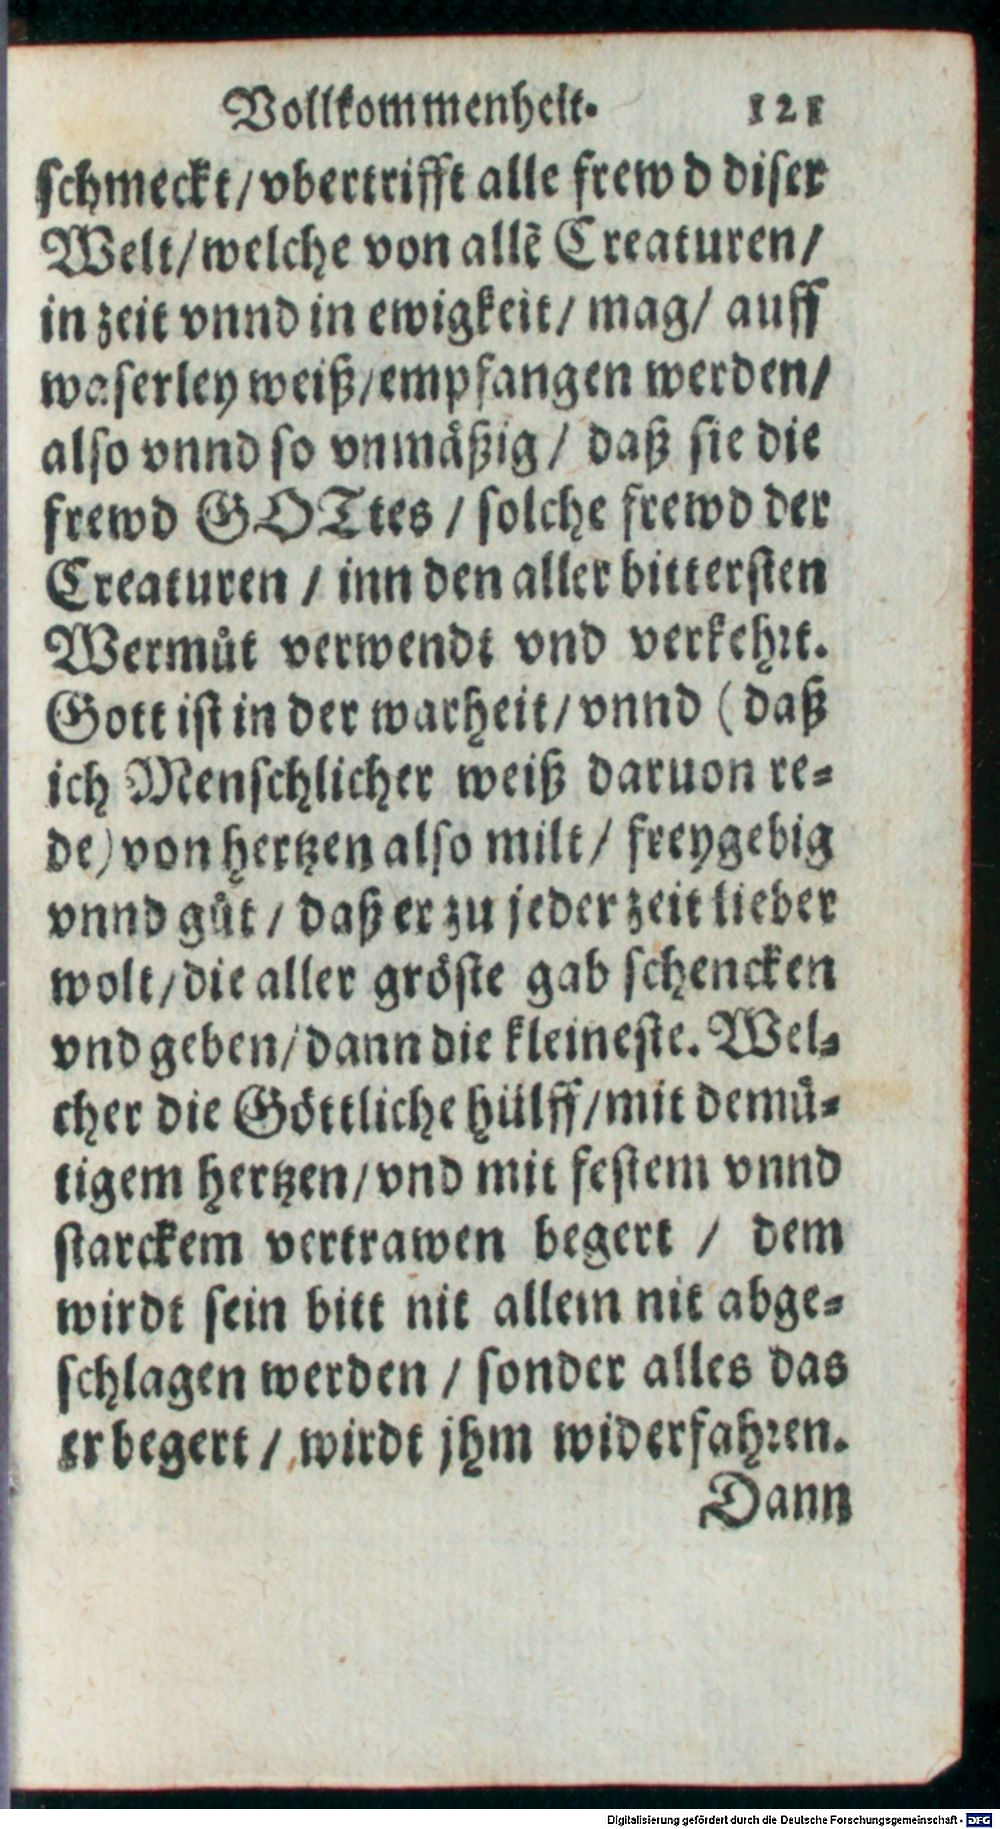 Vollkommenheit. 121
schmeckt/vbertrifft alle frewd diser
Welt/welche von allē Creaturen/
in zeit vnnd in ewigkeit/ mag/ auff
waserley weiß/empfangen werden/
also vnnd so vnmäßig/ daß sie die
frewd GOTtes / solche frewd der
Creaturen / inn den aller bittersten
Wermůt verwendt vnd verkehrt.
Gott ist in der warheit/vnnd (daß
ich Menschlicher weiß daruon re-
de) von hertzen also milt/ freygebig
vnnd gůt / daß er zu jeder zeit lieber
wolt/die aller gröste gab schencken
vnd geben/dann die kleineste. Wel-
cher die Göttliche hülff/mit demü-
tigem hertzen/vnd mit festem vnnd
starckem vertrawen begert / dem
wirdt sein bitt nit allein nit abge-
schlagen werden / sonder alles das
er begert / wirdt jhm widerfahren.
Dann
Digitalisierung gefördert durch die Deutsche Forschungsgemeinschaft - DFG